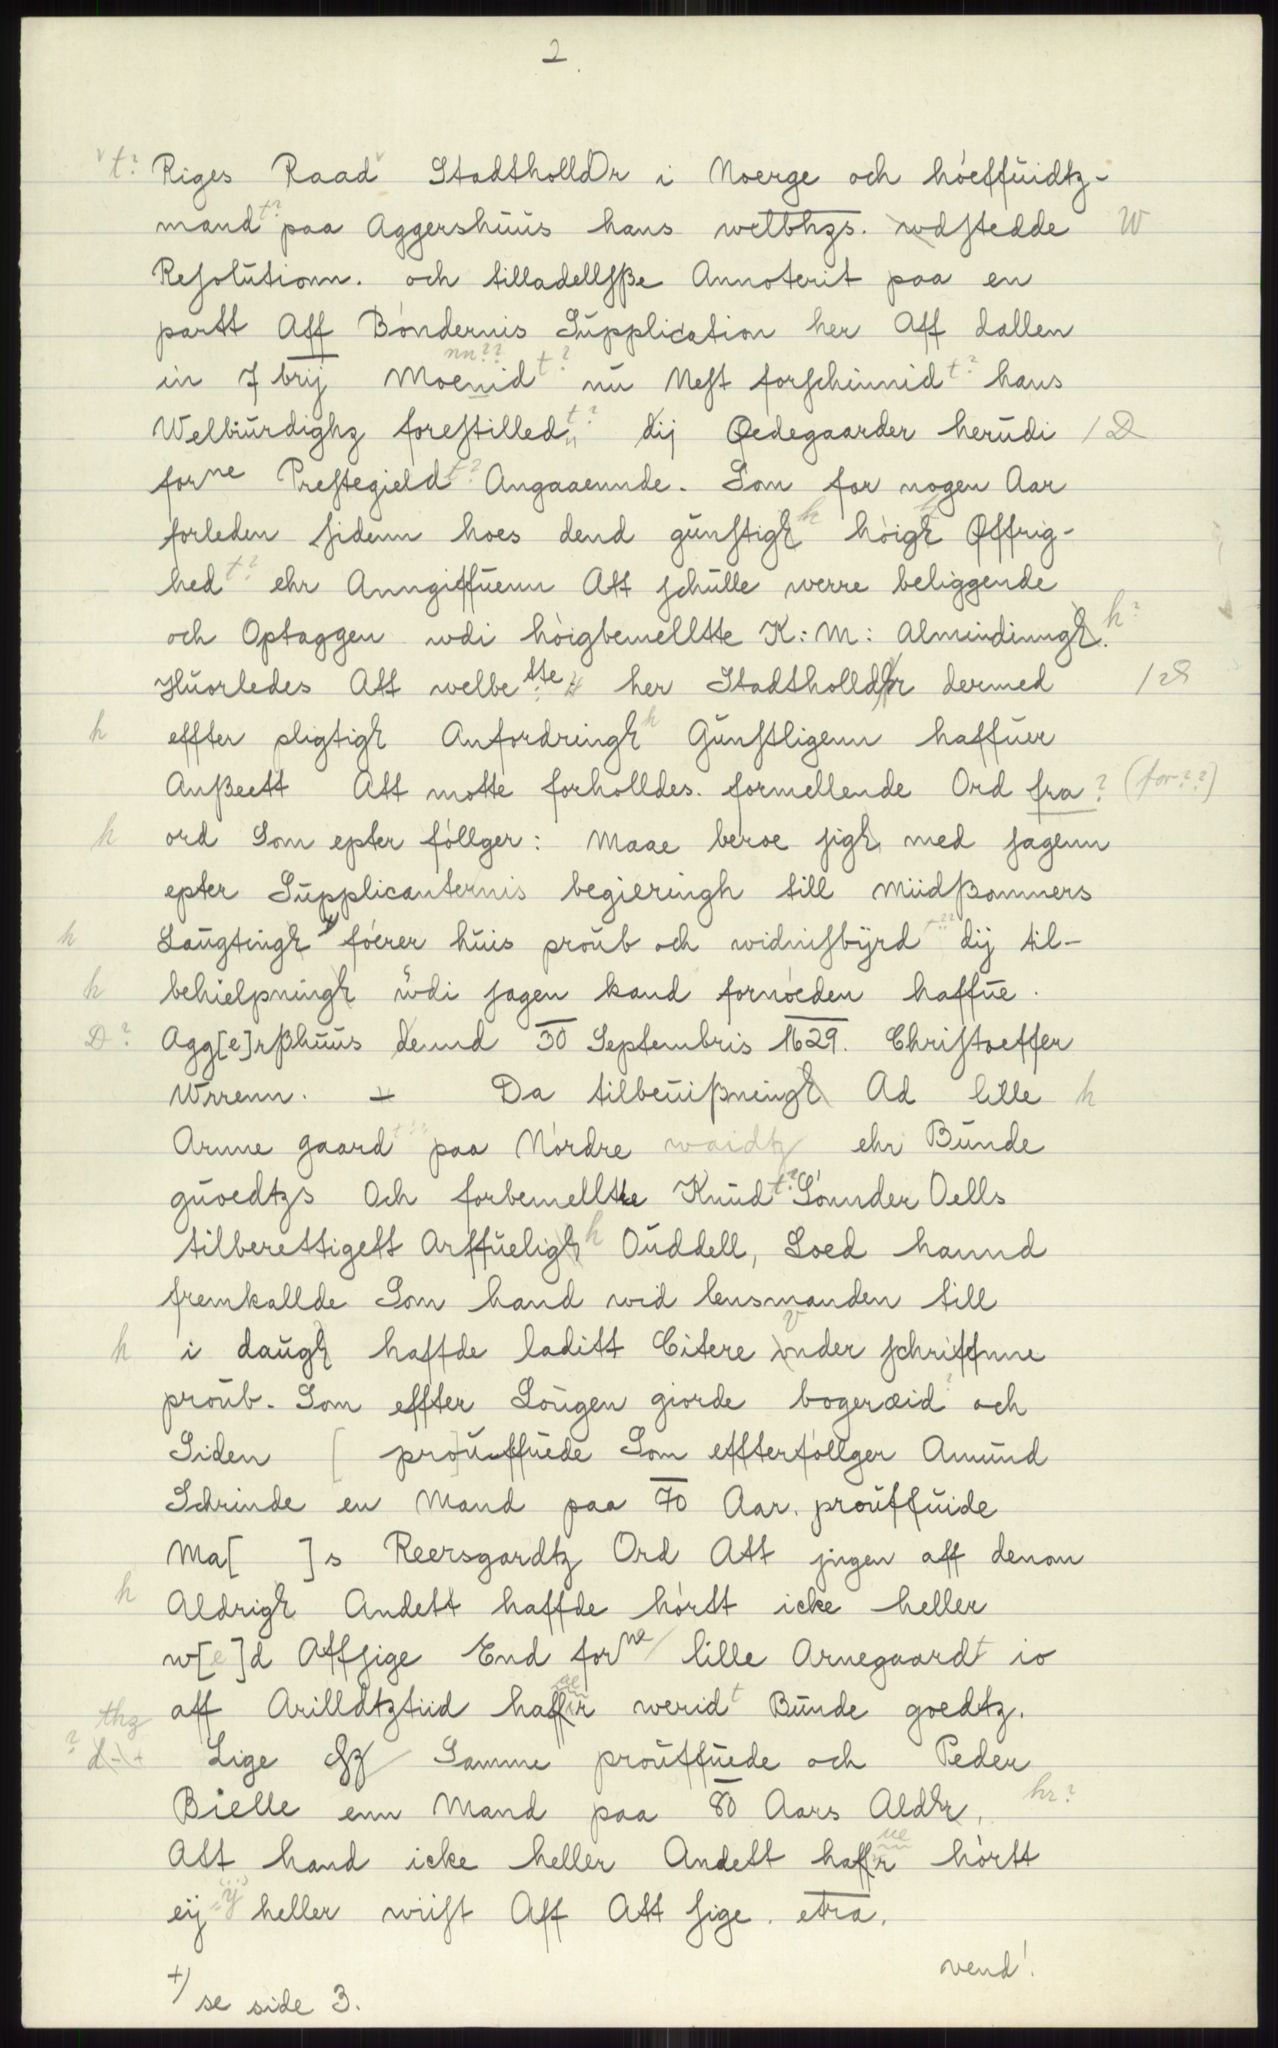 2.
Riges Raad Stadtholldr i Noerge och hóeffuidtz-
mand paa Aggershuus hans welbhzs. wdstedde W
Resolutionn. och tilladellsße Annoterit paa en
partt Aff Bóndernis Supplication her Aff dallen
in 7 brij Moenid nu Nest forschinnid hans
Welbiurdighz forestilled dij Øedegaarder herudi / D
forne Prestegield Angaaennde. Som for nogen Aar
forleden sidenn hoes dend gunstigh hóigh Øffrig-
hed ehr Anngiffuenn Att schulle werre beliggende
och Optaggen wdi hóigbemelltte K: M: Almindinngh. h?
Huorledes Att welbe tte her Stadtholldr dermed
h effter pligtigh Anfordringh Gunstligenn haffuer
Anßeett Att motte forholldes. formellende Ord fra? (for??)
h ord Som epter fóllger: Maae beroe sigh med sagenn
epter Supplicanternis begieringh till Miidßommers
h Laugtingh fóerer huis proub och widnisbyrd dij til-
h behielpningh udi sagen kand fornóeden haffue.
D? Agg[e]rßhuus dennd 30 Septembris 1629. Christoeffer
Wrrenn. + Da tilbeuißningh Ad lille h
Arnne gaard paa Nórdre waidtz ehr Bunde
guoedtzs Och forbemelltte Knud Sónnder Oells
tilberettigett Arffueligh Ouddell, Loed hannd
fremkallde Som hand wid lensmanden till
h i daugh haffde laditt Citere under schriffnne
proub. Som effter Lougen giorde bogeræid och
Siden [ prouffuede Som effterfóllger Amund
Schrinde en Mand paa 70 Aar. prouffuide
Ma[ ]s Reersgardtz Ord Att jngen aff denom
h Aldrigh Andett haffde hórtt icke heller
w[e]d Affsige End forne lille Arnegaardt io
aff Arilldtztiid haffr werid Bunde goedtz.
Lige Samme prouffuede och Peder
Bielle enn Mand paa 80 Aars Aldr, hr?
Att hand icke heller Andett haffr hórtt
eij heller wiist Aff Att sige. etra.
vend!
+/ se side 3.